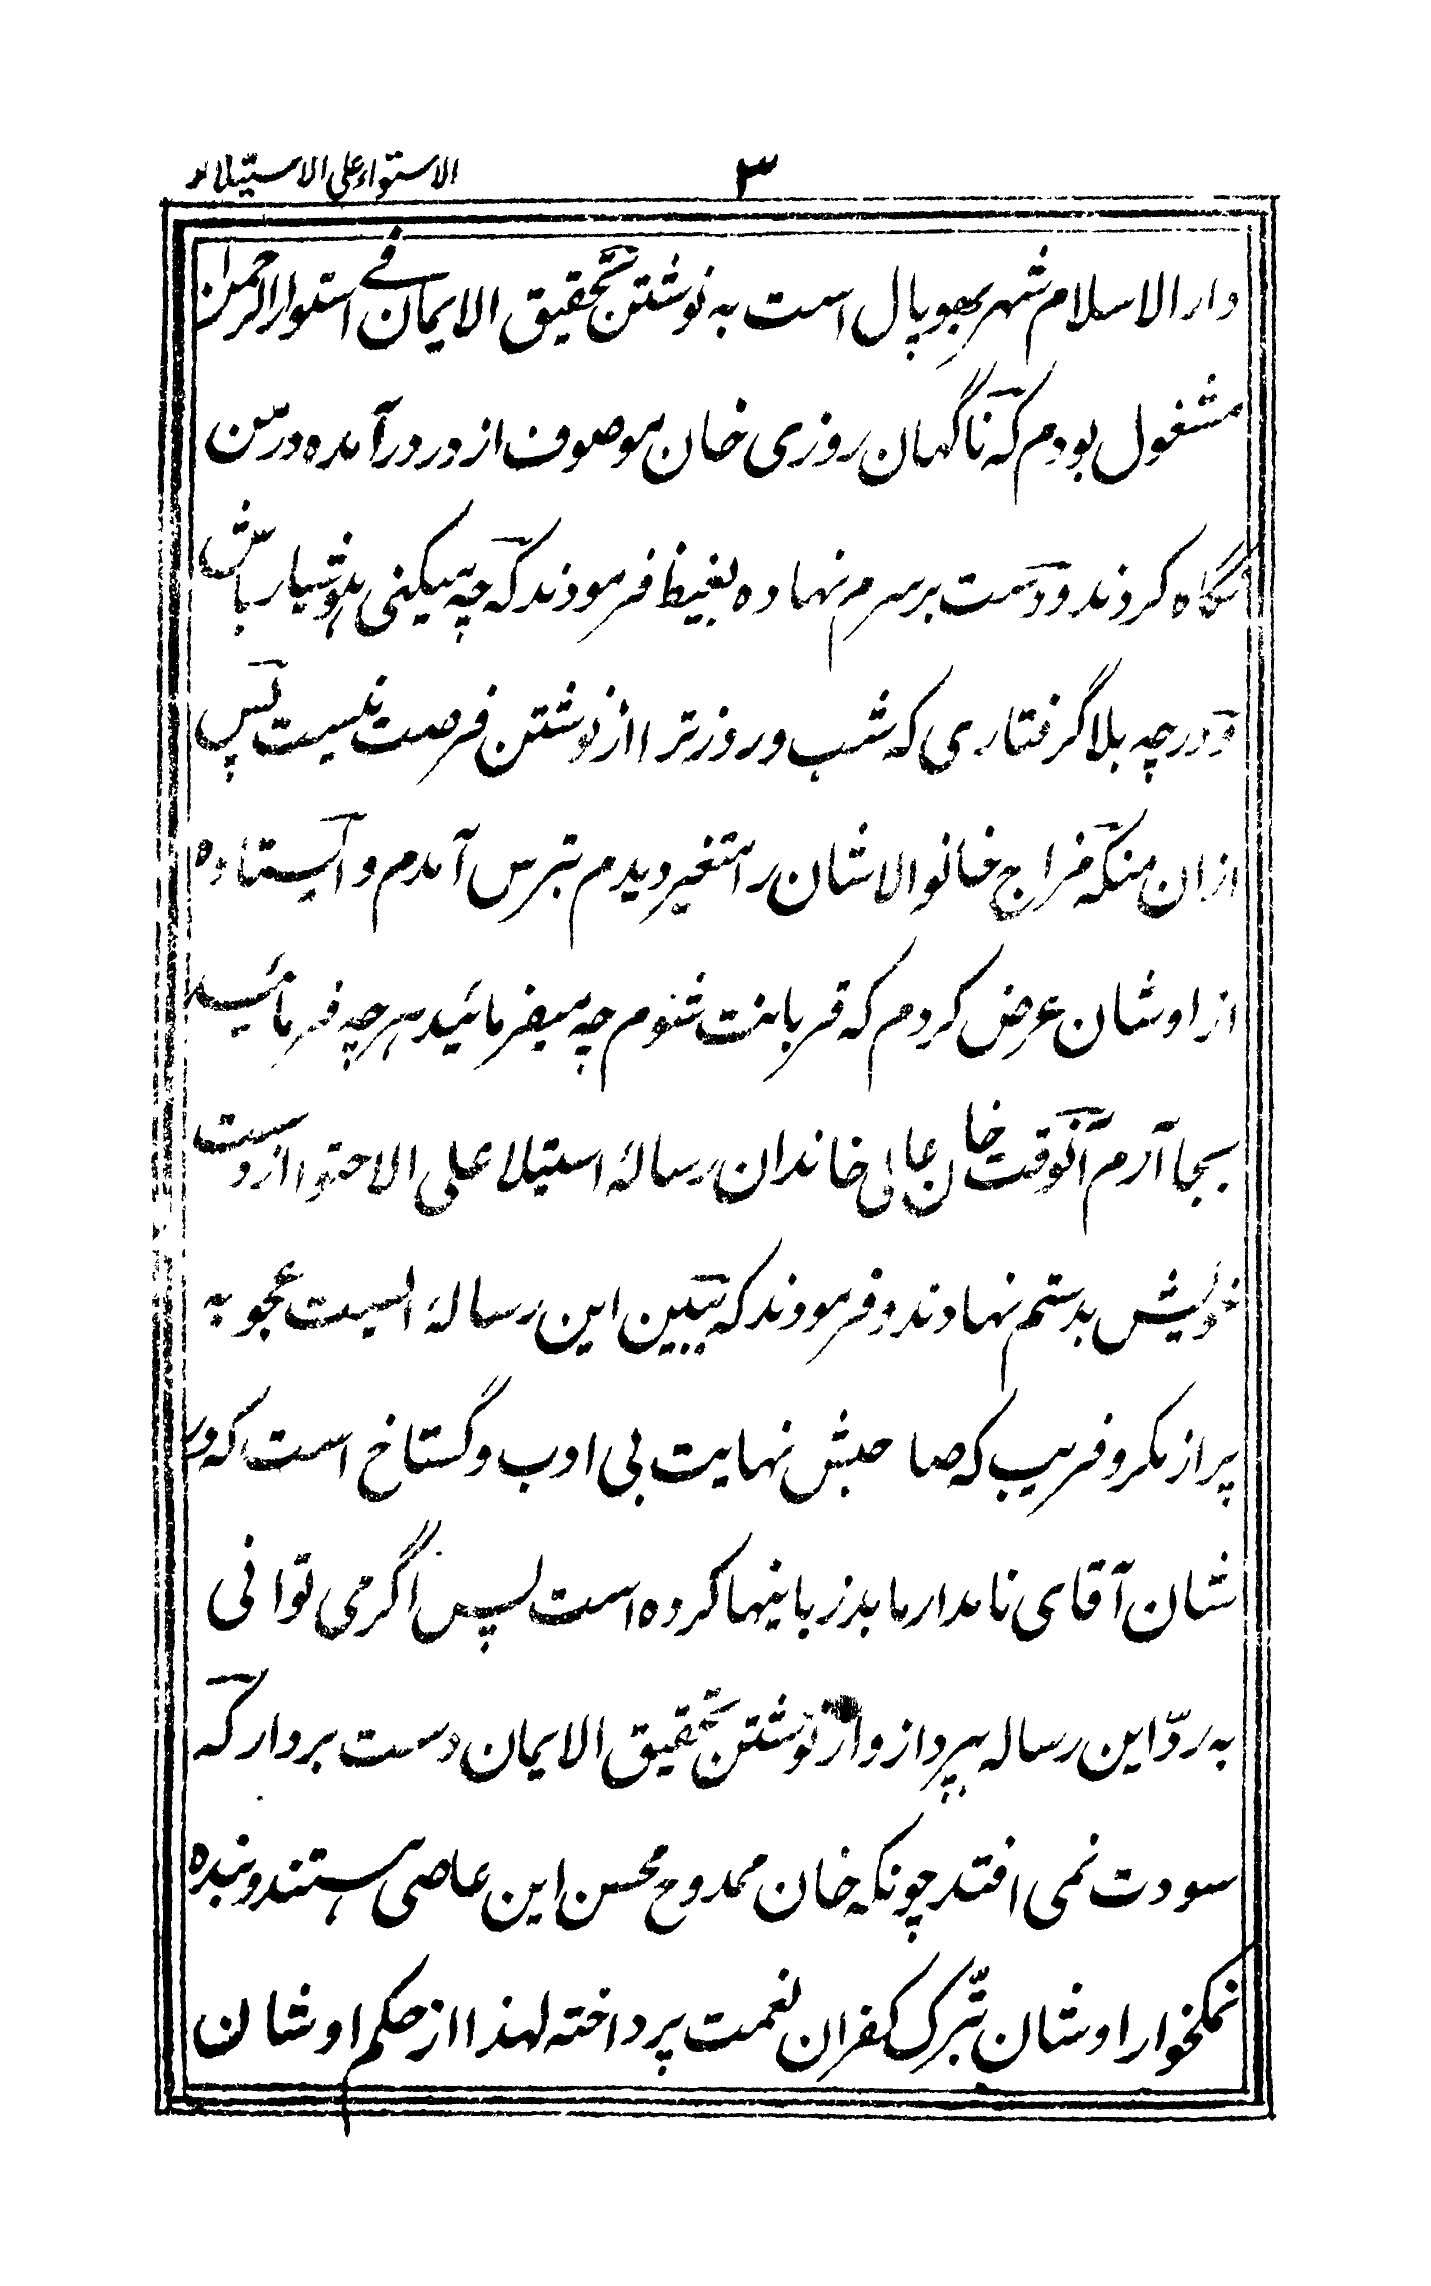 ۳ الاستواء علی الاستیلاء
دار الاسلام شهر بھوپال است به نوشتن تحقیق الایمان فے استواء الرحمن
مشغول بودم که ناگهان روزی خان موصوف از در درآمده در من
نگاه کردند و دست بر سرم نهاده بغیظ فرمودند که چه میکنی هوشیار باش
و در چه بلا گرفتاری که شب و روز ترا از نوشتن فرصت نیست پس
ازان منکه مزاج خانوالاشان را متغیر دیدم بترس آمدم و ایستاده
از اوشان عرض کردم که قربانت شوم چه میفرمائید هرچه فرمائید
بجا آرم آنوقت خان عالی خاندان رسالۂ استیلا علی الاحتوا از دست
خویش بدستم نهادند و فرمودند که ببین این رسالۂ ایست عجوبه
پر از مکر و فریب که صاحبش نهایت بی ادب و گستاخ است که در
شان آقای نامدار ما بدزبانیها کرده است پس اگر می توانی
به ردّ این رساله بپرداز و از نوشتن تحقیق الایمان دست بردار که
سودت نمی افتد چونکه خان ممدوح محسن این عاصی هستند و بنده
نمکخوار اوشان بترک کفران نعمت پرداخته لهذا از حکم اوشان